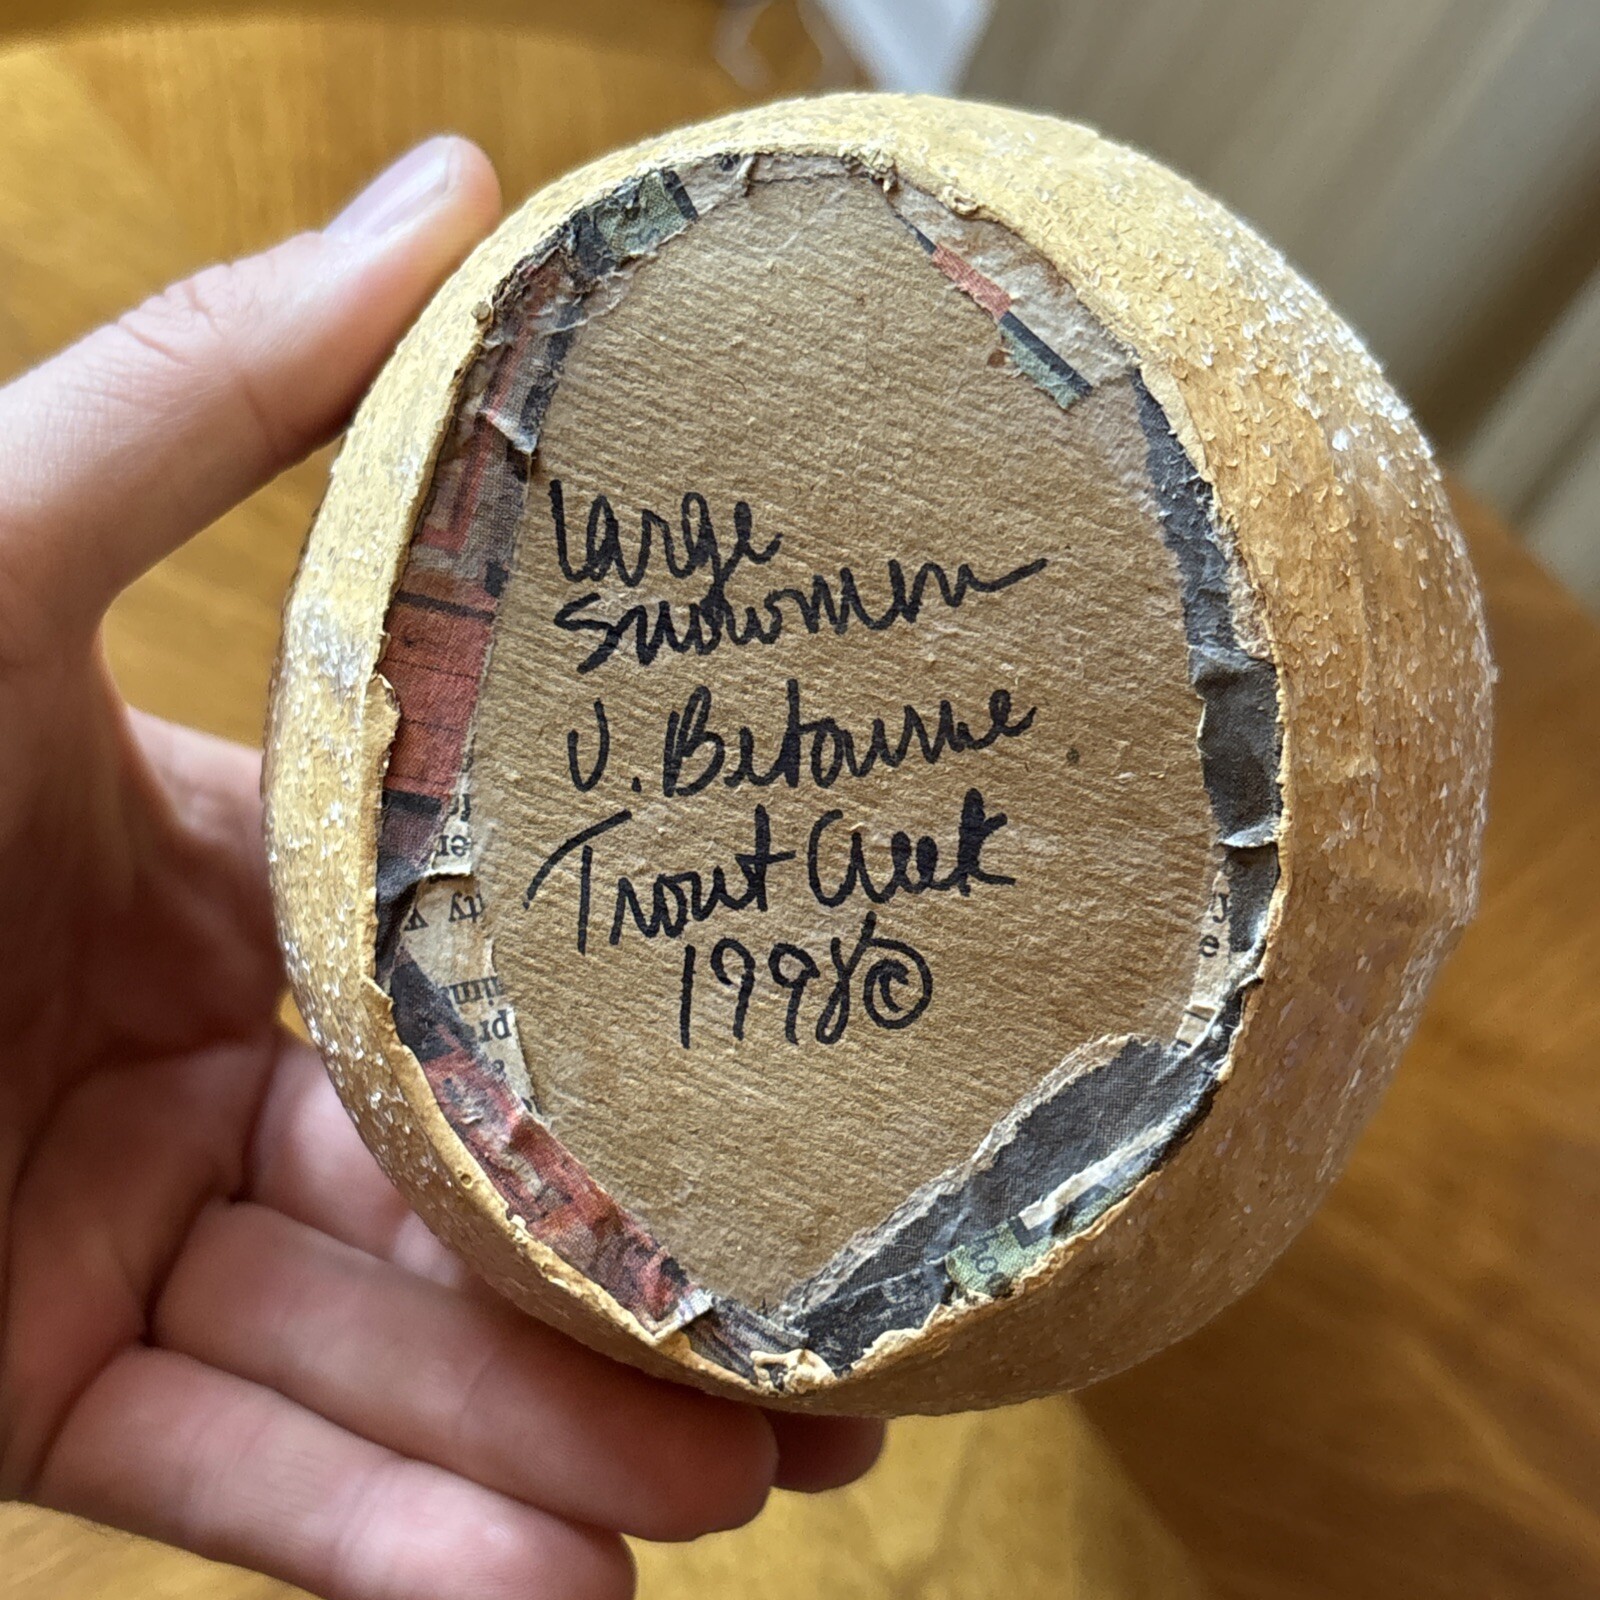 Large
Snowmen
V. Betourne
Trout Creek
1998©
er
ty v
pr